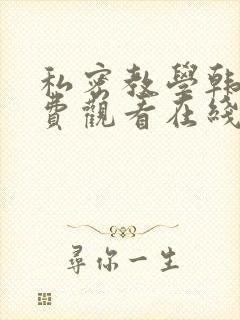 私密教學韩
費觀看在綫
尋你一生